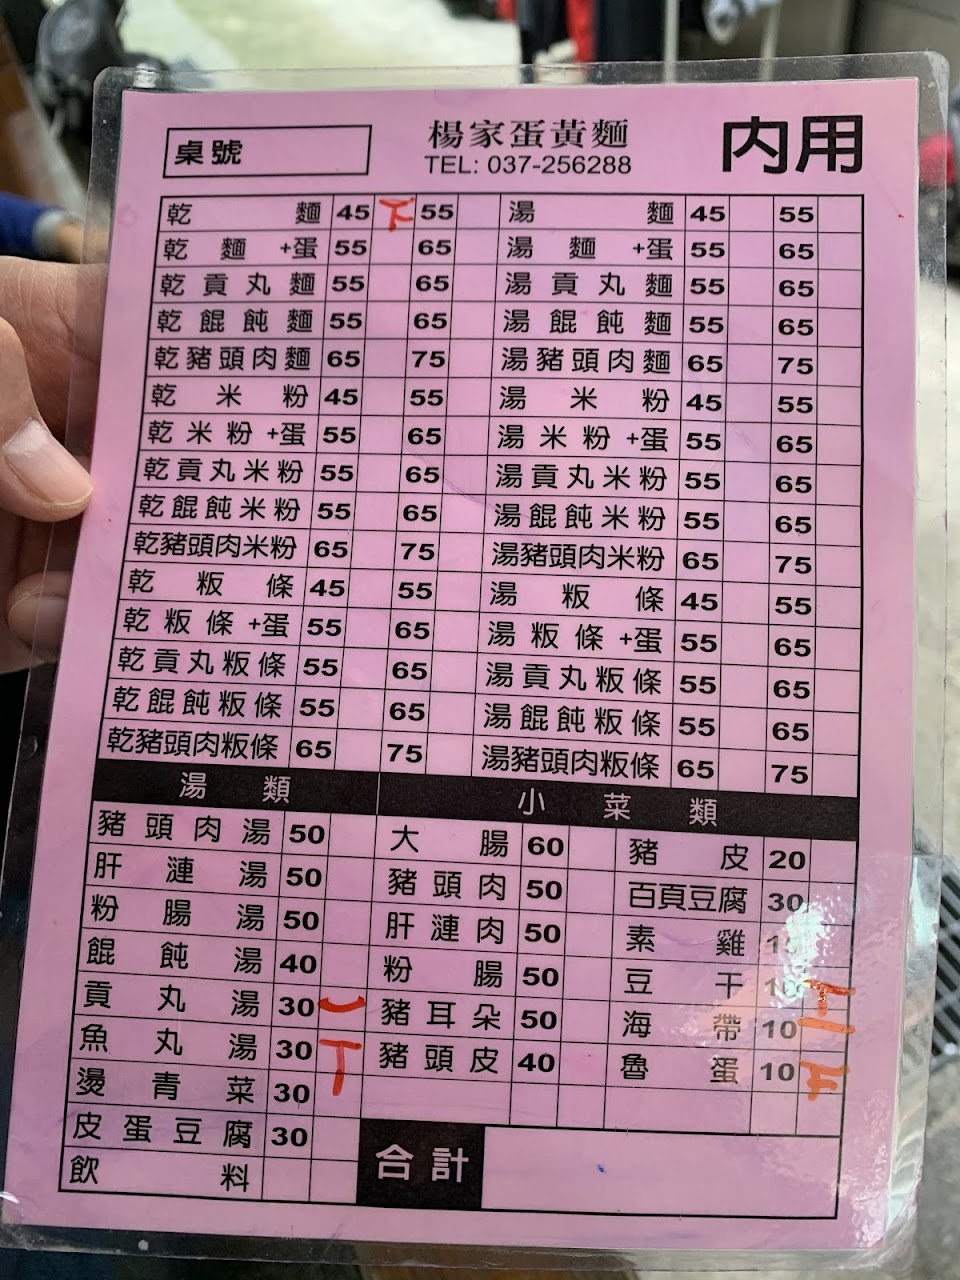 桌號
楊家蛋黃麵
TEL: 037-256288
內用
乾麵 45 下 55 湯麵 45 55
乾麵+蛋 55 65 湯麵+蛋 55 65
乾貢丸麵 55 65 湯貢丸麵 55 65
乾餛飩麵 55 65 湯餛飩麵 55 65
乾豬頭肉麵 65 75 湯豬頭肉麵 65 75
乾米粉 45 55 湯米粉 45 55
乾米粉+蛋 55 65 湯米粉+蛋 55 65
乾貢丸米粉 55 65 湯貢丸米粉 55 65
乾餛飩米粉 55 65 湯餛飩米粉 55 65
乾豬頭肉米粉 65 75 湯豬頭肉米粉 65 75
乾粄條 45 55 湯粄條 45 55
乾粄條+蛋 55 65 湯粄條+蛋 55 65
乾貢丸粄條 55 65 湯貢丸粄條 55 65
乾餛飩粄條 55 65 湯餛飩粄條 55 65
乾豬頭肉粄條 65 75 湯豬頭肉粄條 65 75
湯類 小菜類
豬頭肉湯 50 大腸 60 豬皮 20
肝漣湯 50 豬頭肉 50 百頁豆腐 30
粉腸湯 50 肝漣肉 50 素雞
餛飩湯 40 粉腸 50 豆干 10
貢丸湯 30 一 豬耳朵 50 海帶 10
魚丸湯 30 豬頭皮 40 魯蛋 10
燙青菜 30
皮蛋豆腐 30
飲料
合計